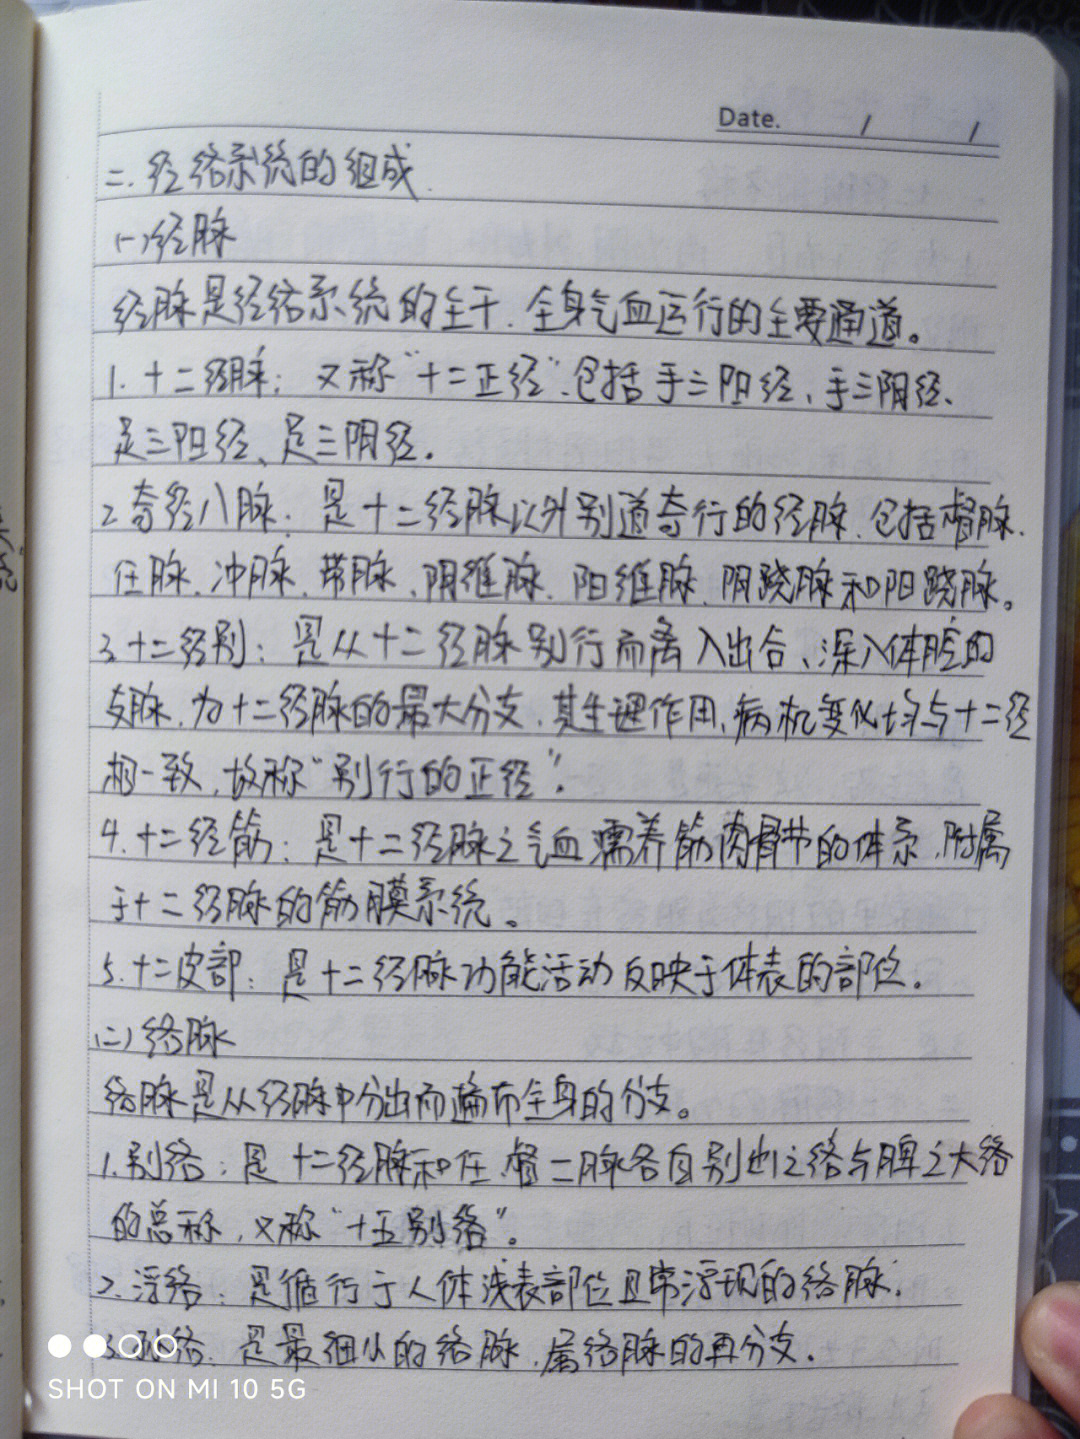 Date. / /
二.经络系统的组成.
(一)经脉
经脉是经络系统的主干.全身气血运行的主要通道。
1.十二经脉:又称"十二正经".包括手三阳经、手三阴经、
足三阳经、足三阴经.
2.奇经八脉:是十二经脉以外别道奇行的经脉.包括督脉.
任脉.冲脉.带脉.阴维脉.阳维脉.阴跷脉和阳跷脉。
3.十二经别:是从十二经脉别行而离入出合、深入体腔的
支脉.为十二经脉的最大分支.其生理作用、病机变化均与十二经
相一致,故称"别行的正经".
4.十二经筋:是十二经脉之气血濡养筋肉骨节的体系.附属
于十二经脉的筋膜系统。
5.十二皮部:是十二经脉功能活动反映于体表的部位.
(二)络脉
络脉是从经脉中分出而遍布全身的分支。
1.别络:是十二经脉和任.督二脉各自别出之络与脾之大络
的总称,又称"十五别络"。
2.浮络:是循行于人体浅表部位且常浮现的络脉.
3.孙络:是最细小的络脉.属络脉的再分支.
SHOT ON MI 10 5G